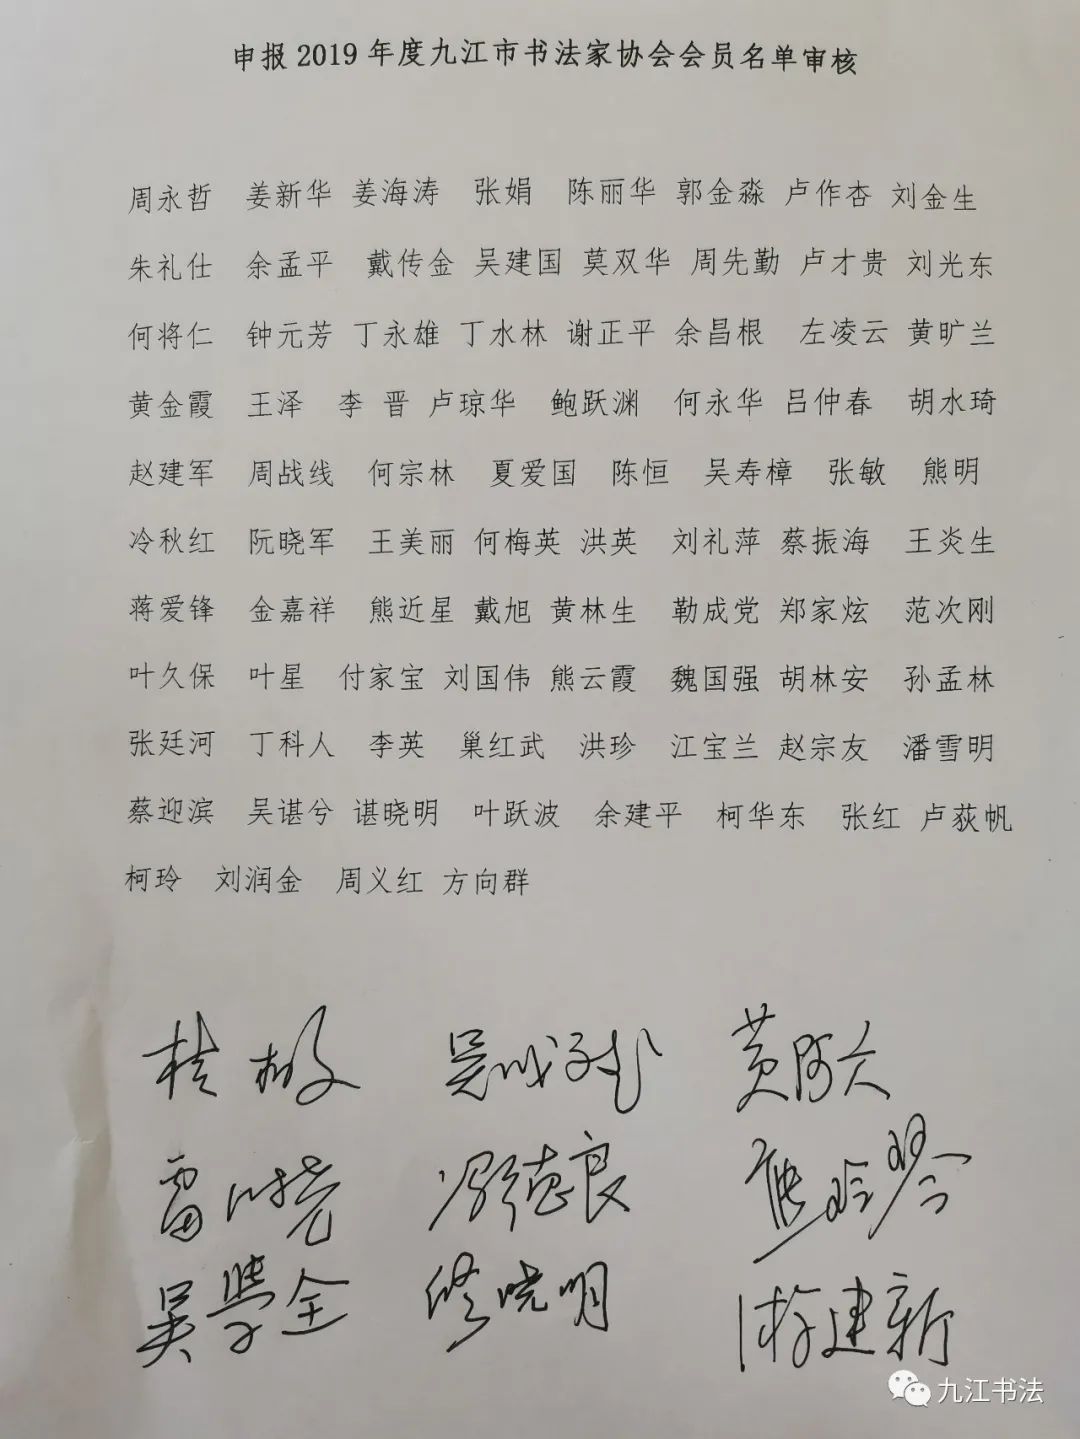 申报2019年度九江市书法家协会会员名单审核
周永哲 姜新华 姜海涛 张娟 陈丽华 郭金淼 卢作杏 刘金生
朱礼仕 余孟平 戴传金 吴建国 莫双华 周先勤 卢才贵 刘光东
何将仁 钟元芳 丁永雄 丁水林 谢正平 余昌根 左凌云 黄旷兰
黄金霞 王泽 李 晋 卢琼华 鲍跃渊 何永华 吕仲春 胡水琦
赵建军 周战线 何宗林 夏爱国 陈恒 吴寿樟 张敏 熊明
冷秋红 阮晓军 王美丽 何梅英 洪英 刘礼萍 蔡振海 王炎生
蒋爱锋 金嘉祥 熊近星 戴旭 黄林生 勒成党 郑家炫 范次刚
叶久保 叶星 付家宝 刘国伟 熊云霞 魏国强 胡林安 孙孟林
张廷河 丁科人 李英 巢红武 洪珍 江宝兰 赵宗友 潘雪明
蔡迎滨 吴谌兮 谌晓明 叶跃波 余建平 柯华东 张红 卢荻帆
柯玲 刘润金 周义红 方向群
黄阿六
雷 德良 熊玲琴
吴学全 修晓明 游建新
九江书法